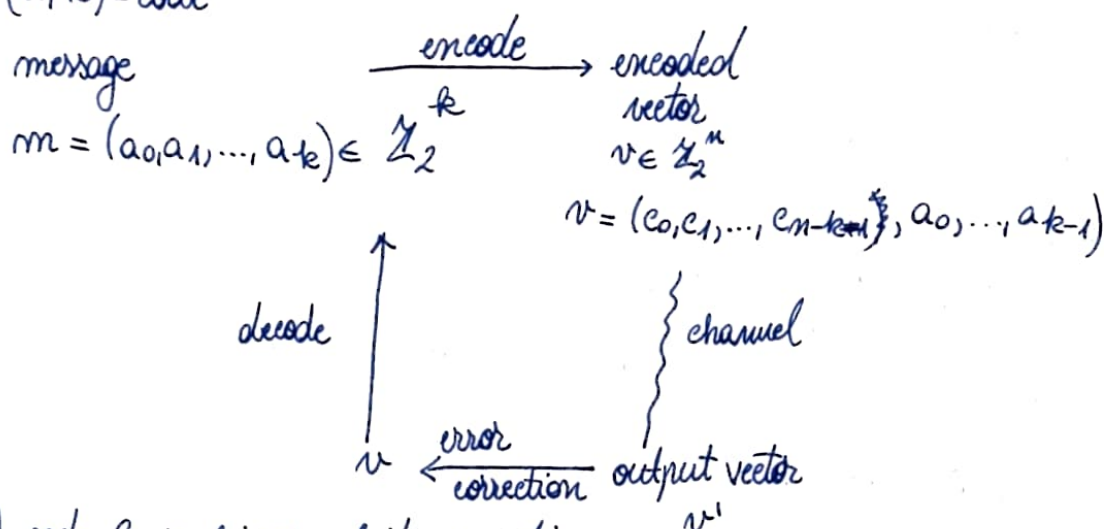 message encode encoded
k vector
m = (a₀,a₁,...,a_k) ∈ ℤ₂ᵏ v ∈ ℤ₂ⁿ
v = (c₀,c₁,...,c_{n-k-1}, a₀,...,a_{k-1})
decode channel
error
v ← correction output vector
v'